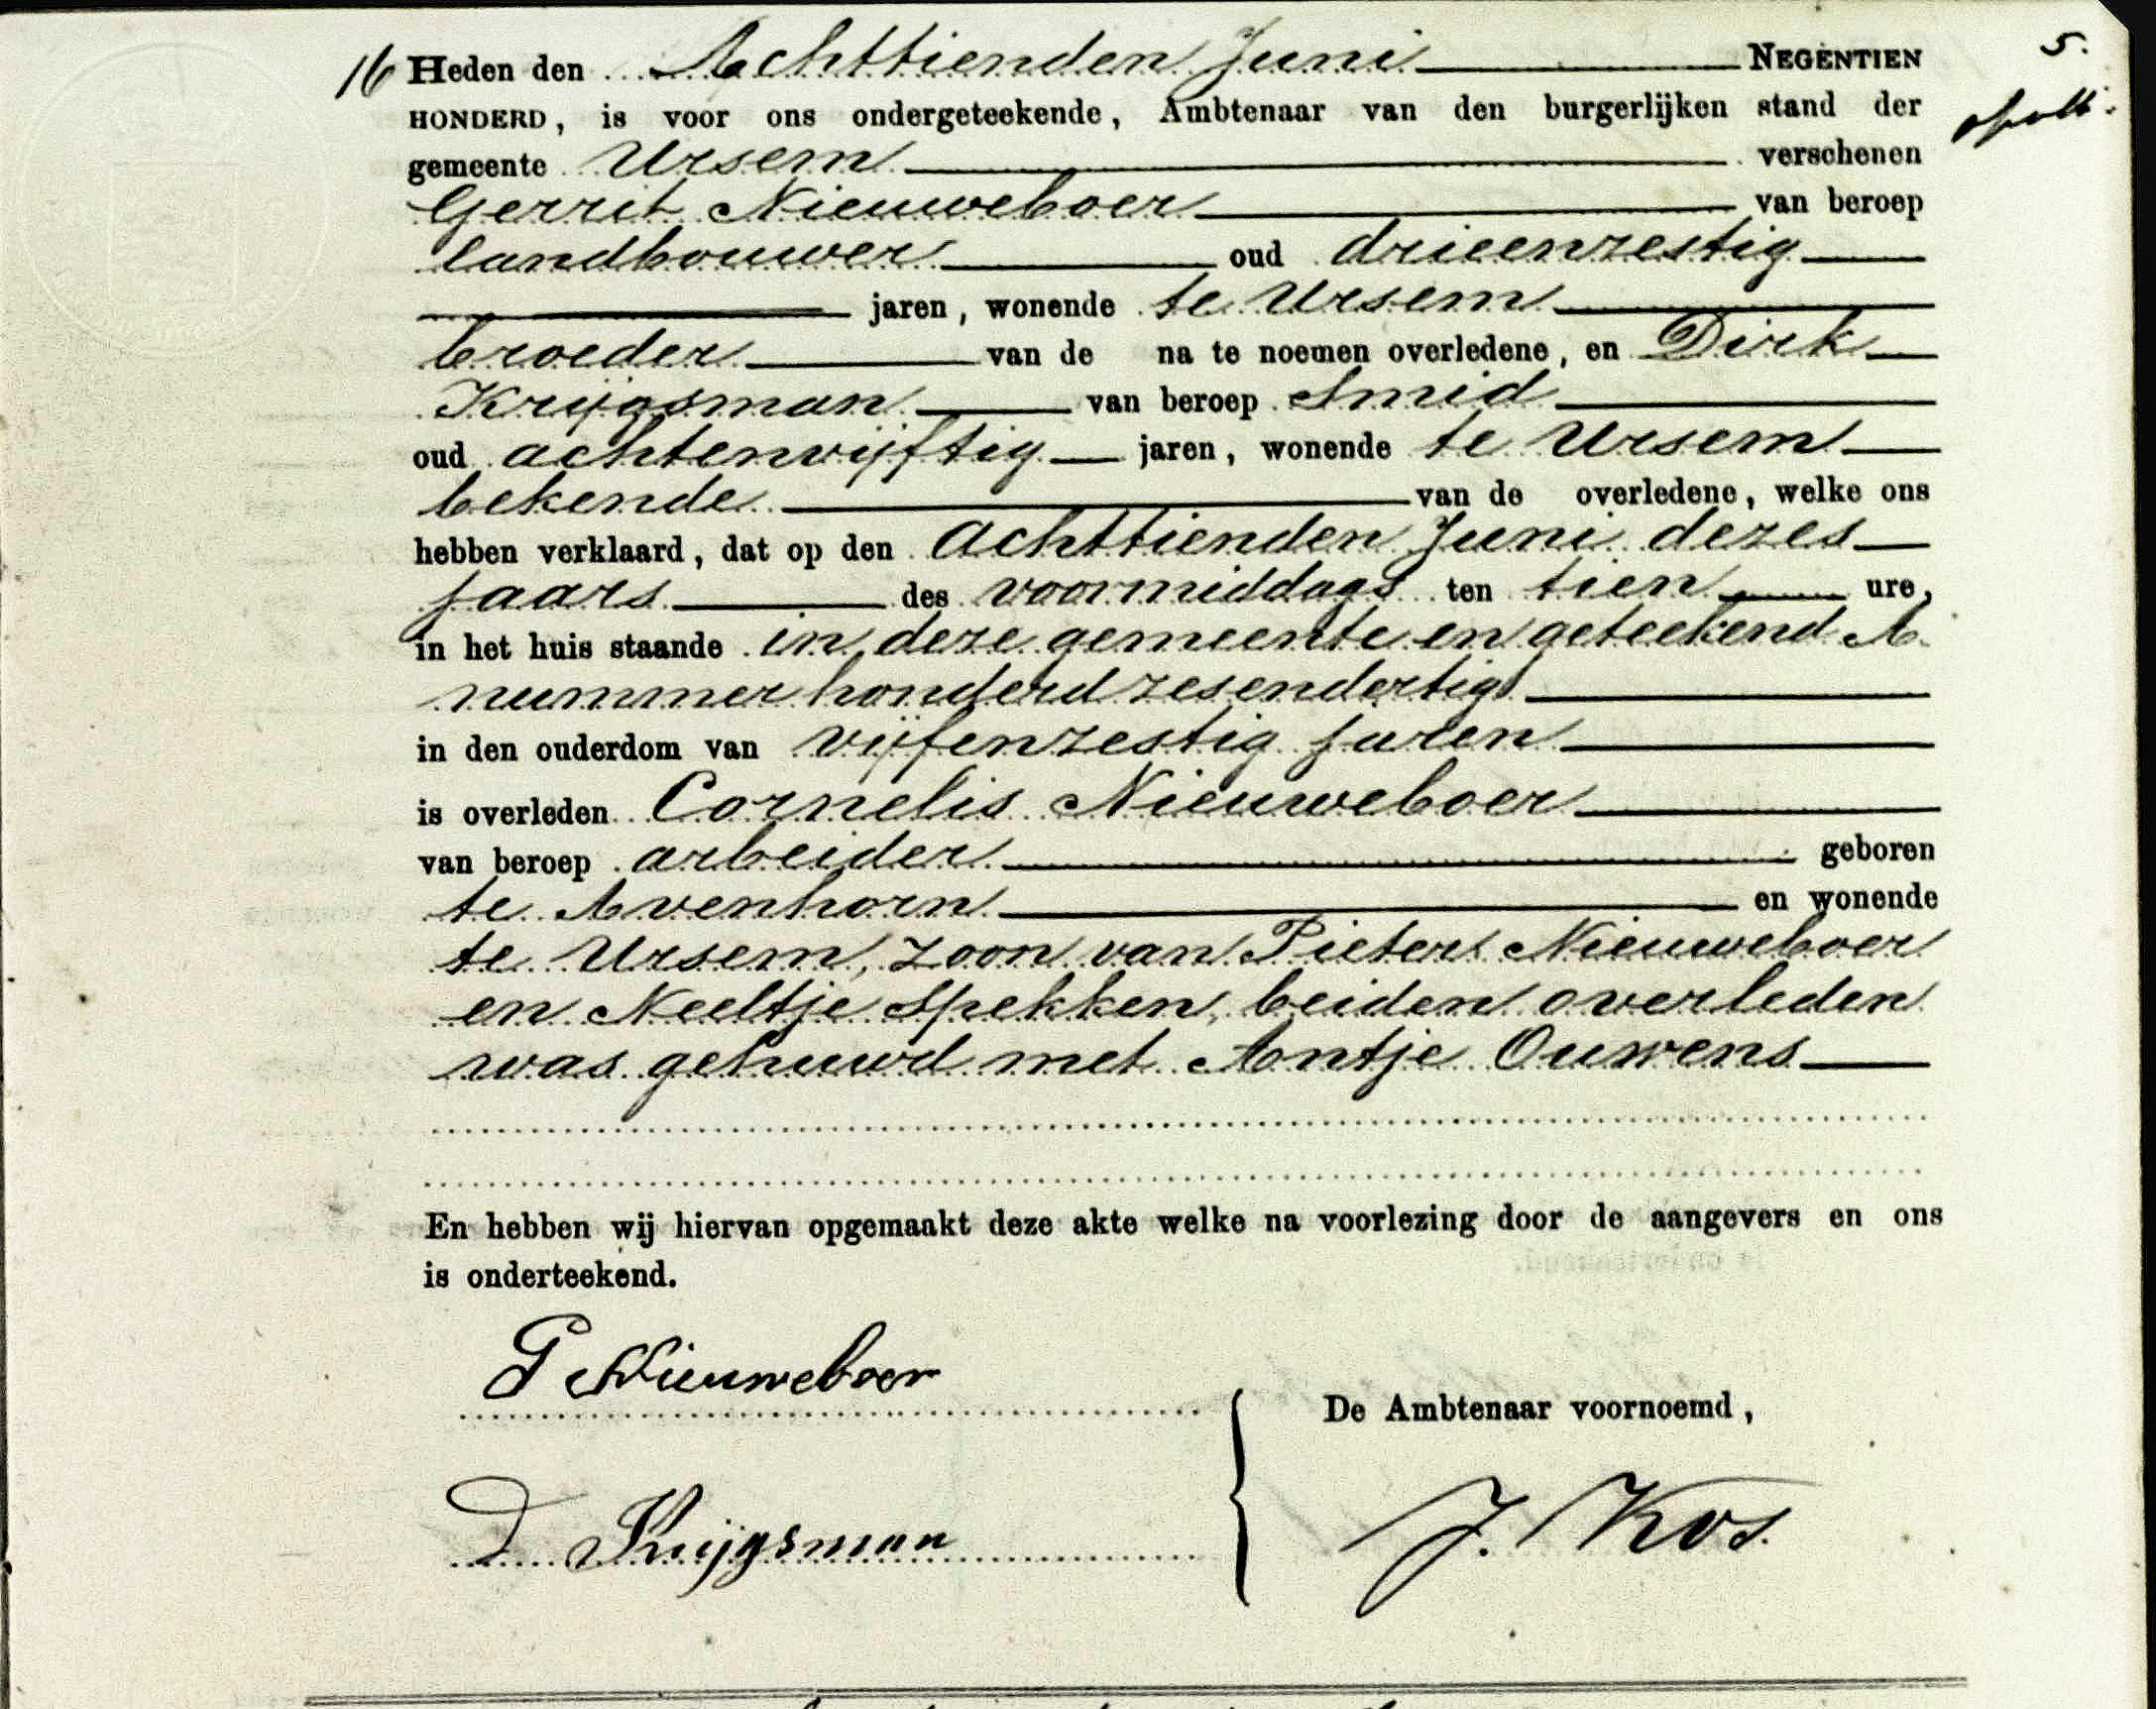 16 Heden den Achttienden Juni NEGENTIEN
5.
HONDERD, is voor ons ondergeteekende, Ambtenaar van den burgerlijken stand der
gemeente Ursem verschenen
Gerrit Nieuweboer van beroep
landbouwer oud drieenzestig
jaren, wonende te Ursem
broeder van de na te noemen overledene, en Dirk
Krijgsman van beroep Smid
oud achtenvijftig jaren, wonende te Ursem
bekende van de overledene, welke ons
hebben verklaard, dat op den achttienden Juni dezes
jaars des voormiddags ten tien ure,
in het huis staande in deze gemeente en geteekend A
nummer honderd zesendertig
in den ouderdom van vijfenzestig jaren
is overleden Cornelis Nieuweboer
van beroep arbeider geboren
te Avenhorn en wonende
te Ursem, zoon van Pieter Nieuweboer
en Neeltje Spekken, beiden overleden
was gehuwd met Antje Ouwens
En hebben wij hiervan opgemaakt deze akte welke na voorlezing door de aangevers en ons
is onderteekend.
G Nieuweboer
De Ambtenaar voornoemd,
D Krijgsman
J. Kos.